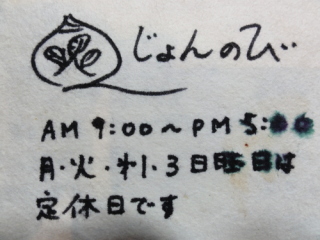 じょんのび
AM 9:00～PM 5:00
月・火・オ1・3日曜日は
定休日です